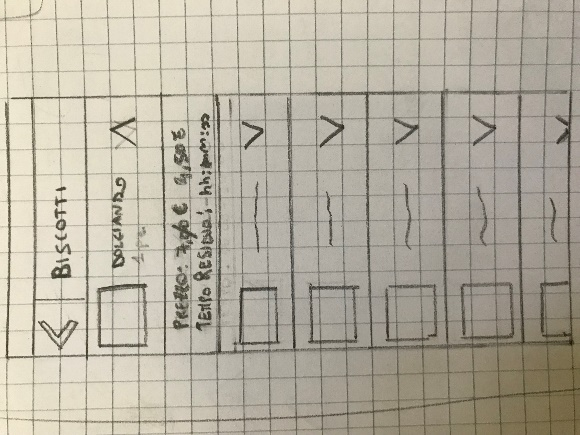 BISCOTTI
DOLCIANDO
1 pz.
PREZZO: 7,00 € 3,50 €
TEMPO RESIDUO: -hh:mm:ss